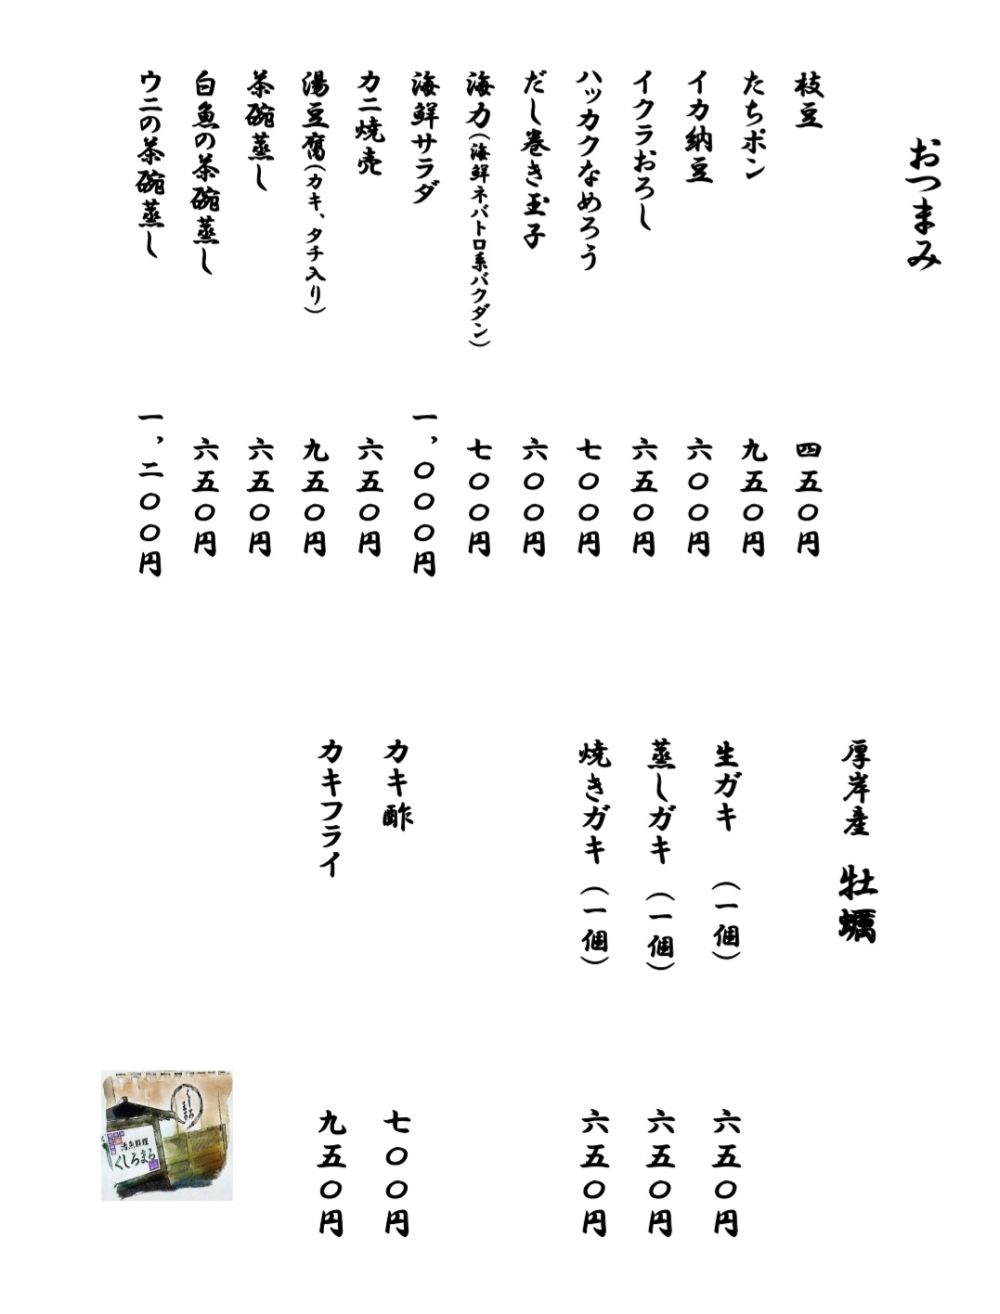 おつまみ
枝豆 四五〇円
たちポン 九五〇円
イカ納豆 六〇〇円
イクラおろし 六五〇円
ハッカクなめろう 七〇〇円
だし巻き玉子 六〇〇円
海力(海鮮ネバトロ系バクダン) 七〇〇円
海鮮サラダ 一,〇〇〇円
カニ焼売 六五〇円
湯豆腐(カキ、タチ入り) 九五〇円
茶碗蒸し 六五〇円
白魚の茶碗蒸し 六五〇円
ウニの茶碗蒸し 一,二〇〇円
厚岸産 牡蠣
生ガキ (一個) 六五〇円
蒸しガキ (一個) 六五〇円
焼きガキ (一個) 六五〇円
カキ酢 七〇〇円
カキフライ 九五〇円
活魚料理
くしろまる